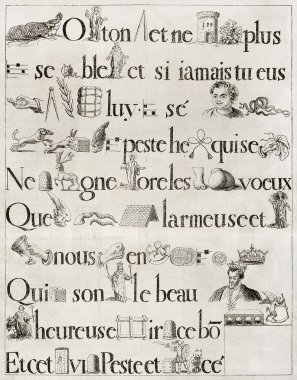 O ton et ne plus
se ble et si iamais tu eus
luy se
peste he quise
Ne gne ore les voeux
Que larmeuse et
nous en
Qui son le beau
heureuse ir ce bõ
Et cet vi Peste et cé